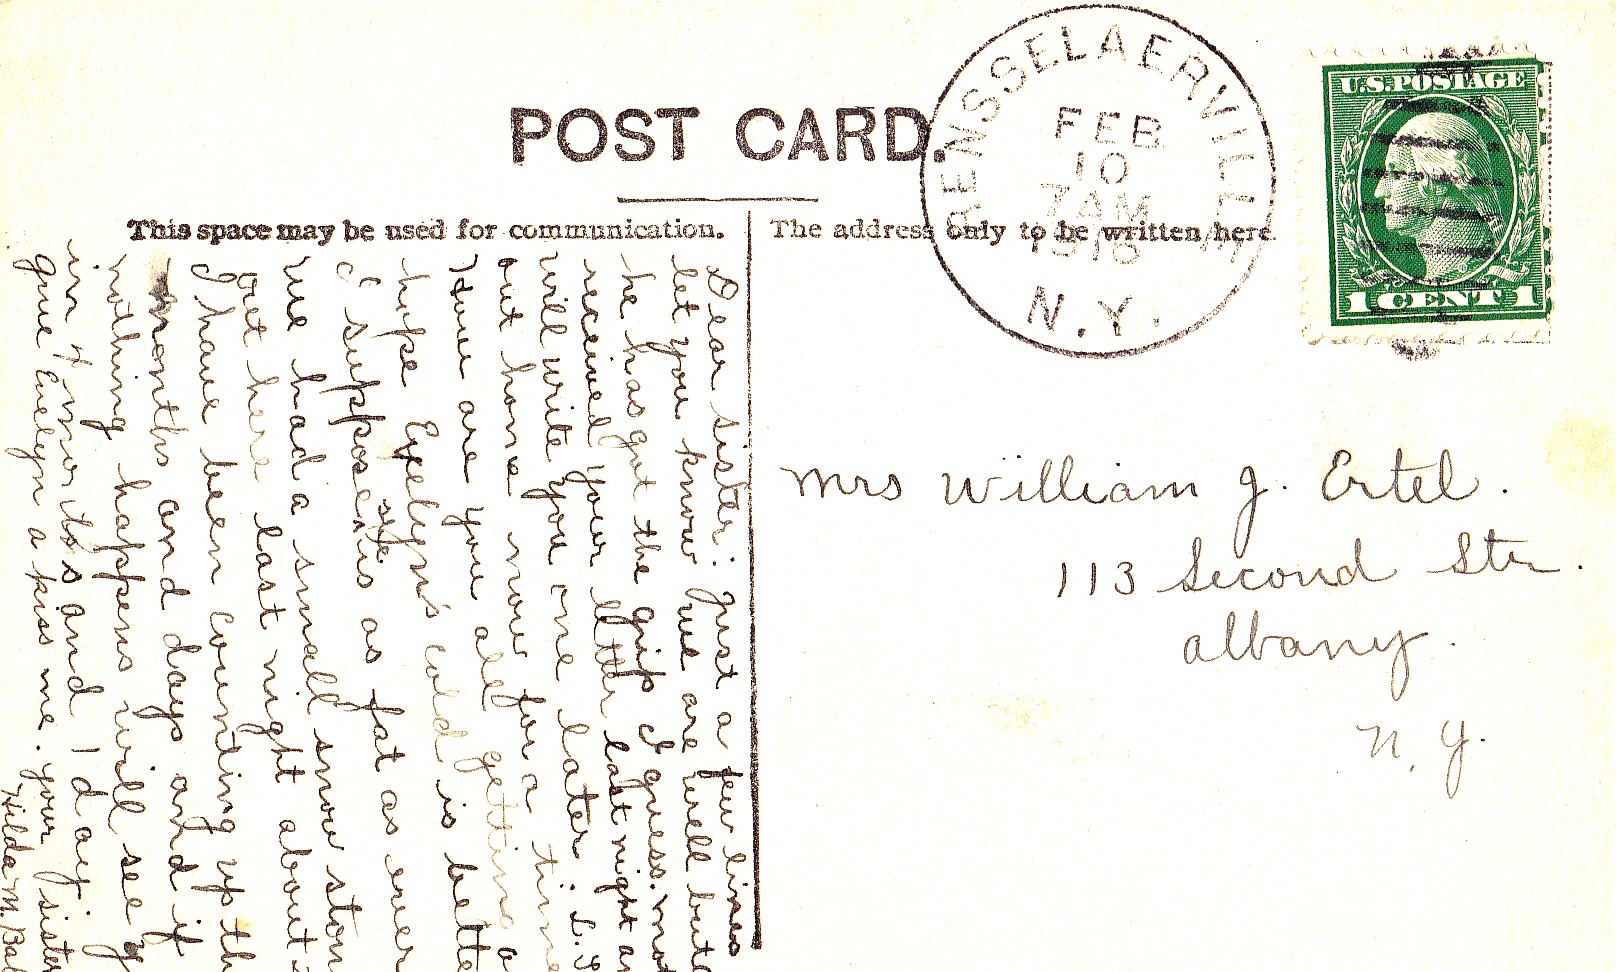 POST CARD
This space may be used for communication.
The address only to be written here
RENSSELAERVILLE
FEB
10
7 AM
N.Y.
U.S. POSTAGE
1 CENT 1
Mrs William J. Ertel.
113 Second Str.
Albany.
N.Y.
Dear sister: Just a few lines
let you know we are well but
he has got the grip I guess.
received your letter last night
will write you one later.
out home now for a time
How are you all getting
hope Evelyn's cold is
I suppose she is as fat as ever
we had a small snow
out here last night about
I have been counting up
months and days and if
nothing happens will see
in 4 months and 1 day
give Evelyn a kiss me. your sister
Hilda M.